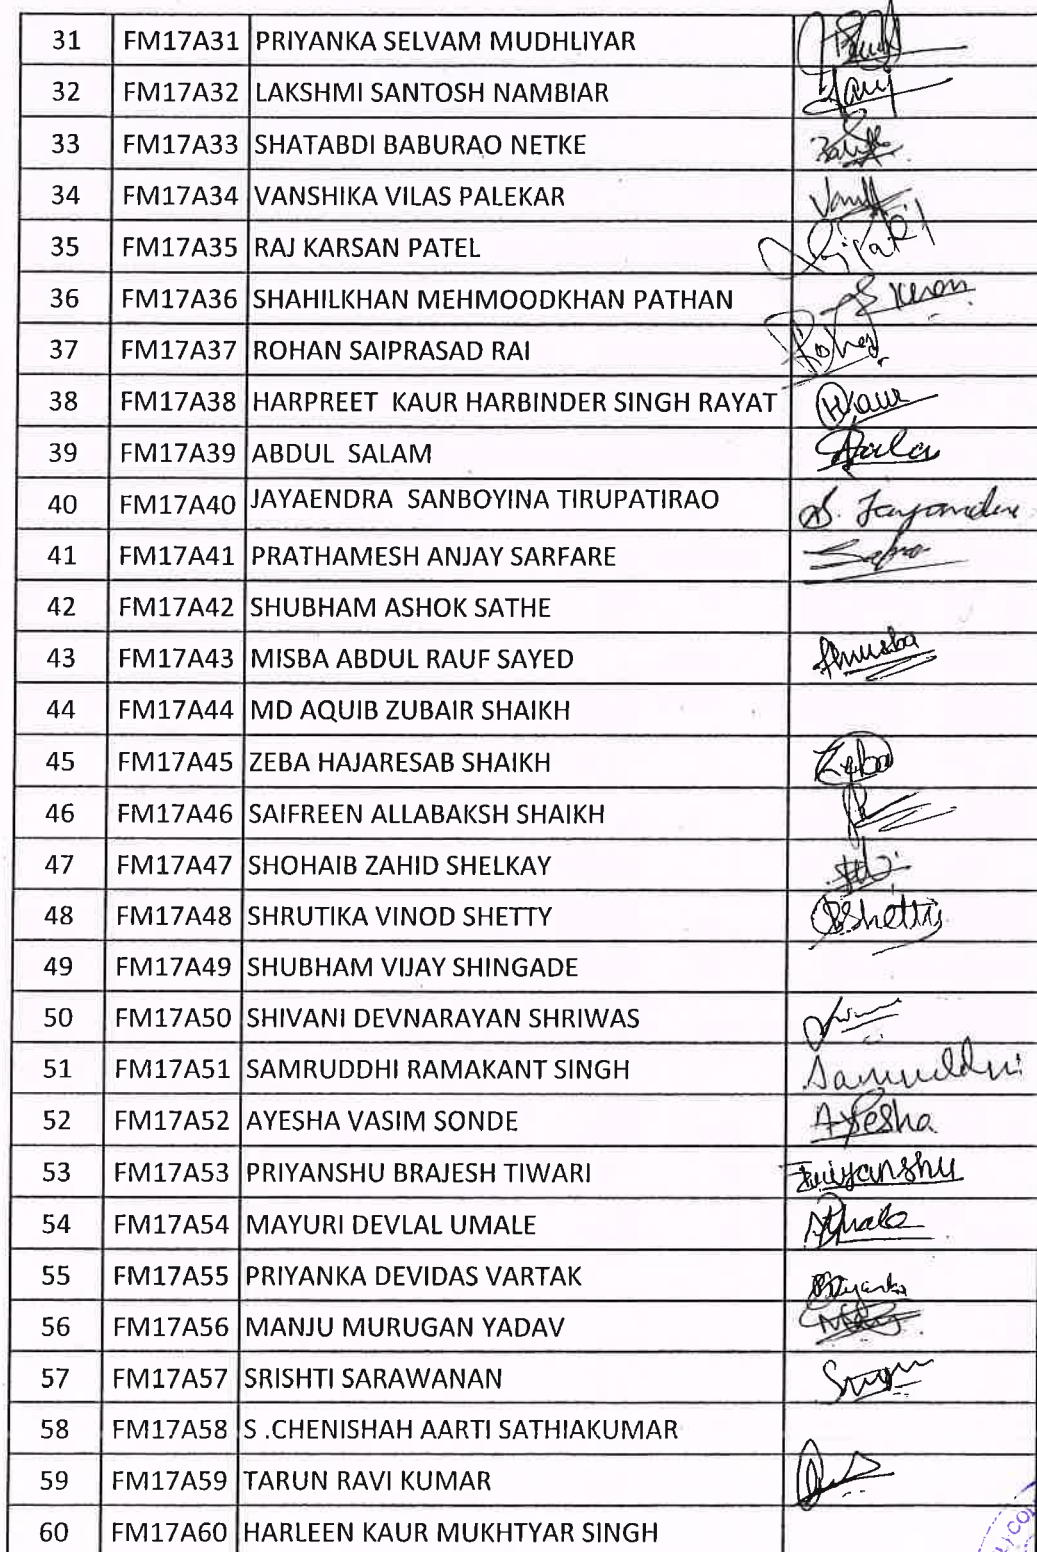 31 FM17A31 PRIYANKA SELVAM MUDHLIYAR
32 FM17A32 LAKSHMI SANTOSH NAMBIAR
33 FM17A33 SHATABDI BABURAO NETKE
34 FM17A34 VANSHIKA VILAS PALEKAR
35 FM17A35 RAJ KARSAN PATEL
36 FM17A36 SHAHILKHAN MEHMOODKHAN PATHAN
37 FM17A37 ROHAN SAIPRASAD RAI
38 FM17A38 HARPREET KAUR HARBINDER SINGH RAYAT
39 FM17A39 ABDUL SALAM
40 FM17A40 JAYAENDRA SANBOYINA TIRUPATIRAO
41 FM17A41 PRATHAMESH ANJAY SARFARE
42 FM17A42 SHUBHAM ASHOK SATHE
43 FM17A43 MISBA ABDUL RAUF SAYED
44 FM17A44 MD AQUIB ZUBAIR SHAIKH
45 FM17A45 ZEBA HAJARESAB SHAIKH Zeba
46 FM17A46 SAIFREEN ALLABAKSH SHAIKH
47 FM17A47 SHOHAIB ZAHID SHELKAY
48 FM17A48 SHRUTIKA VINOD SHETTY
49 FM17A49 SHUBHAM VIJAY SHINGADE
50 FM17A50 SHIVANI DEVNARAYAN SHRIWAS
51 FM17A51 SAMRUDDHI RAMAKANT SINGH
52 FM17A52 AYESHA VASIM SONDE Ayesha
53 FM17A53 PRIYANSHU BRAJESH TIWARI Priyanshu
54 FM17A54 MAYURI DEVLAL UMALE
55 FM17A55 PRIYANKA DEVIDAS VARTAK
56 FM17A56 MANJU MURUGAN YADAV
57 FM17A57 SRISHTI SARAWANAN
58 FM17A58 S .CHENISHAH AARTI SATHIAKUMAR
59 FM17A59 TARUN RAVI KUMAR
60 FM17A60 HARLEEN KAUR MUKHTYAR SINGH